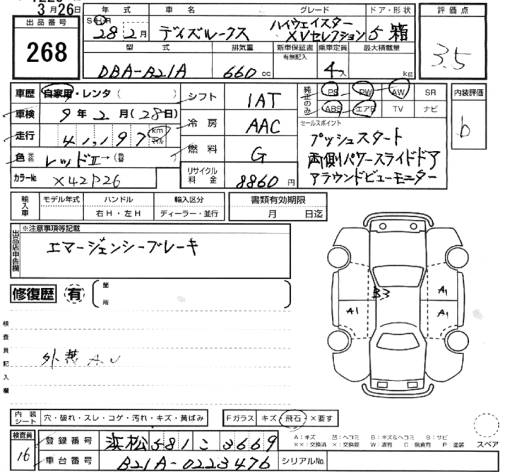 3月26日
出品番号 268
年式 28年2月
車名 デイズルークス
グレード ハイウェイスター XVセレクション
ドア・形状 5 箱
評価点 3.5
型式 DBA-B21A
排気量 660 cc
新車保証書 有無記入
乗車定員 4人
最大積載量 kg
車歴 自家用・レンタ( )
車検 9年2月(28日)
走行 41,197 km
色 レッドⅡ
カラーNo X42P26
シフト 1AT
冷房 AAC
燃料 G
リサイクル料金 8860円
純正のみ PS PW AW SR
ABS エアB TV ナビ
内装評価 b
セールスポイント
プッシュスタート
両側パワースライドドア
アラウンドビューモニター
輸入車 モデル年式 ハンドル 右H・左H 輸入区分 ディーラー・並行
書類有効期限 月 日迄
出品店申告欄 ※注意事項等記載
エマージェンシーブレーキ
修復歴 有 箇所
B3
A1
A1
A1
検査員記入欄
内装シート 穴・破れ・スレ・コゲ・汚れ・キズ・黄ばみ
Fガラス キズ・飛石・×要す
A:キズ U:凹ミ B:キズ&ヘコミ S:サビ
××:交換済 ×:要交換 W:波有 C:腐食有 P:塗装
スペア
検査員 16
登録番号 浜松581こ3669
車台番号 B21A-0223476
シリアルNo